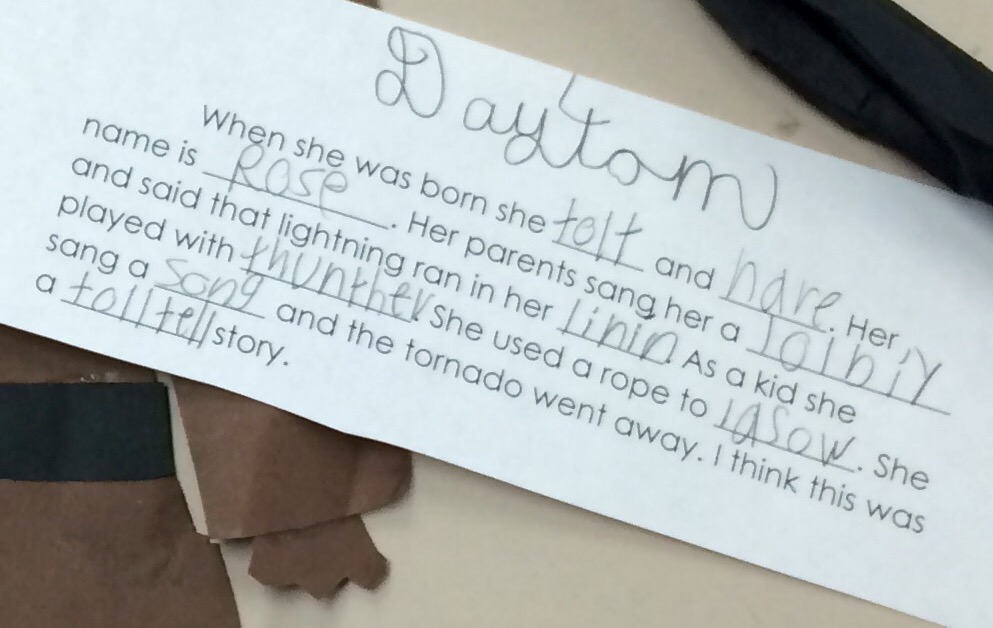 Daytom
When she was born she tolt and hare. Her
name is Rose. Her parents sang her a lolbiy
and said that lightning ran in her linin As a kid she
played with thunther She used a rope to lasow. She
sang a song and the tornado went away. I think this was
a tolltell story.